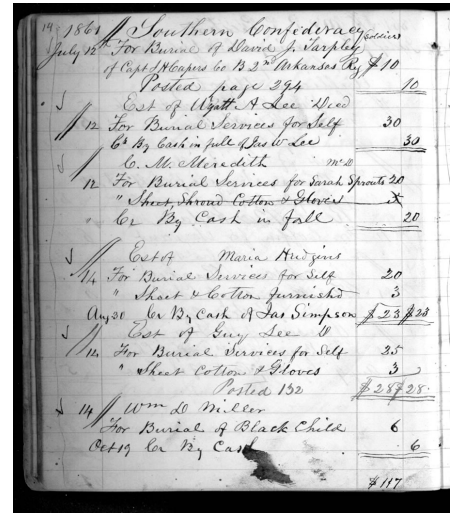 14 1861 Southern Confederacy Soldiers
July 12th For Burial of David J. Tarpley
of Capt J H Capers Co B 2nd Arkansas Reg $10
Posted page 294 10
Est of Wyatt A Lee Died
12 For Burial Services for Self 30
Cr By Cash in full of Jas W Lee 30
C. M. Meredith
12 For Burial Services for Sarah Sprouts 20
" Sheet, Shroud Cotton & Gloves
" Cr By Cash in full 20
Est of Maria Hudgins
14 For Burial Services for Self 20
" Sheet & Cotton furnishd 3
Aug 30 Cr By Cash of Jas Simpson $23 $23
Est of Guy Lee D
14 For Burial Services for Self 25
" Sheet Cotton & Gloves 3
Posted 132 $28 $28
14 Wm D Miller
For Burial of Black Child 6
Oct 19 Cr By Cash 6
$117